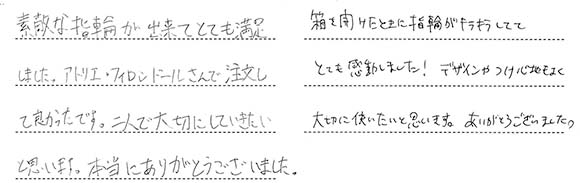 素敵な指輪が出来てとても満足
しました。アトリエ・フィロンドールさんで注文し
て良かったです。二人で大切にしていきたい
と思います。本当にありがとうございました。
箱を開けたときに指輪がキラキラしてて
とても感動しました! デザインやつけ心地もよく
大切に使いたいと思います。ありがとうございました。